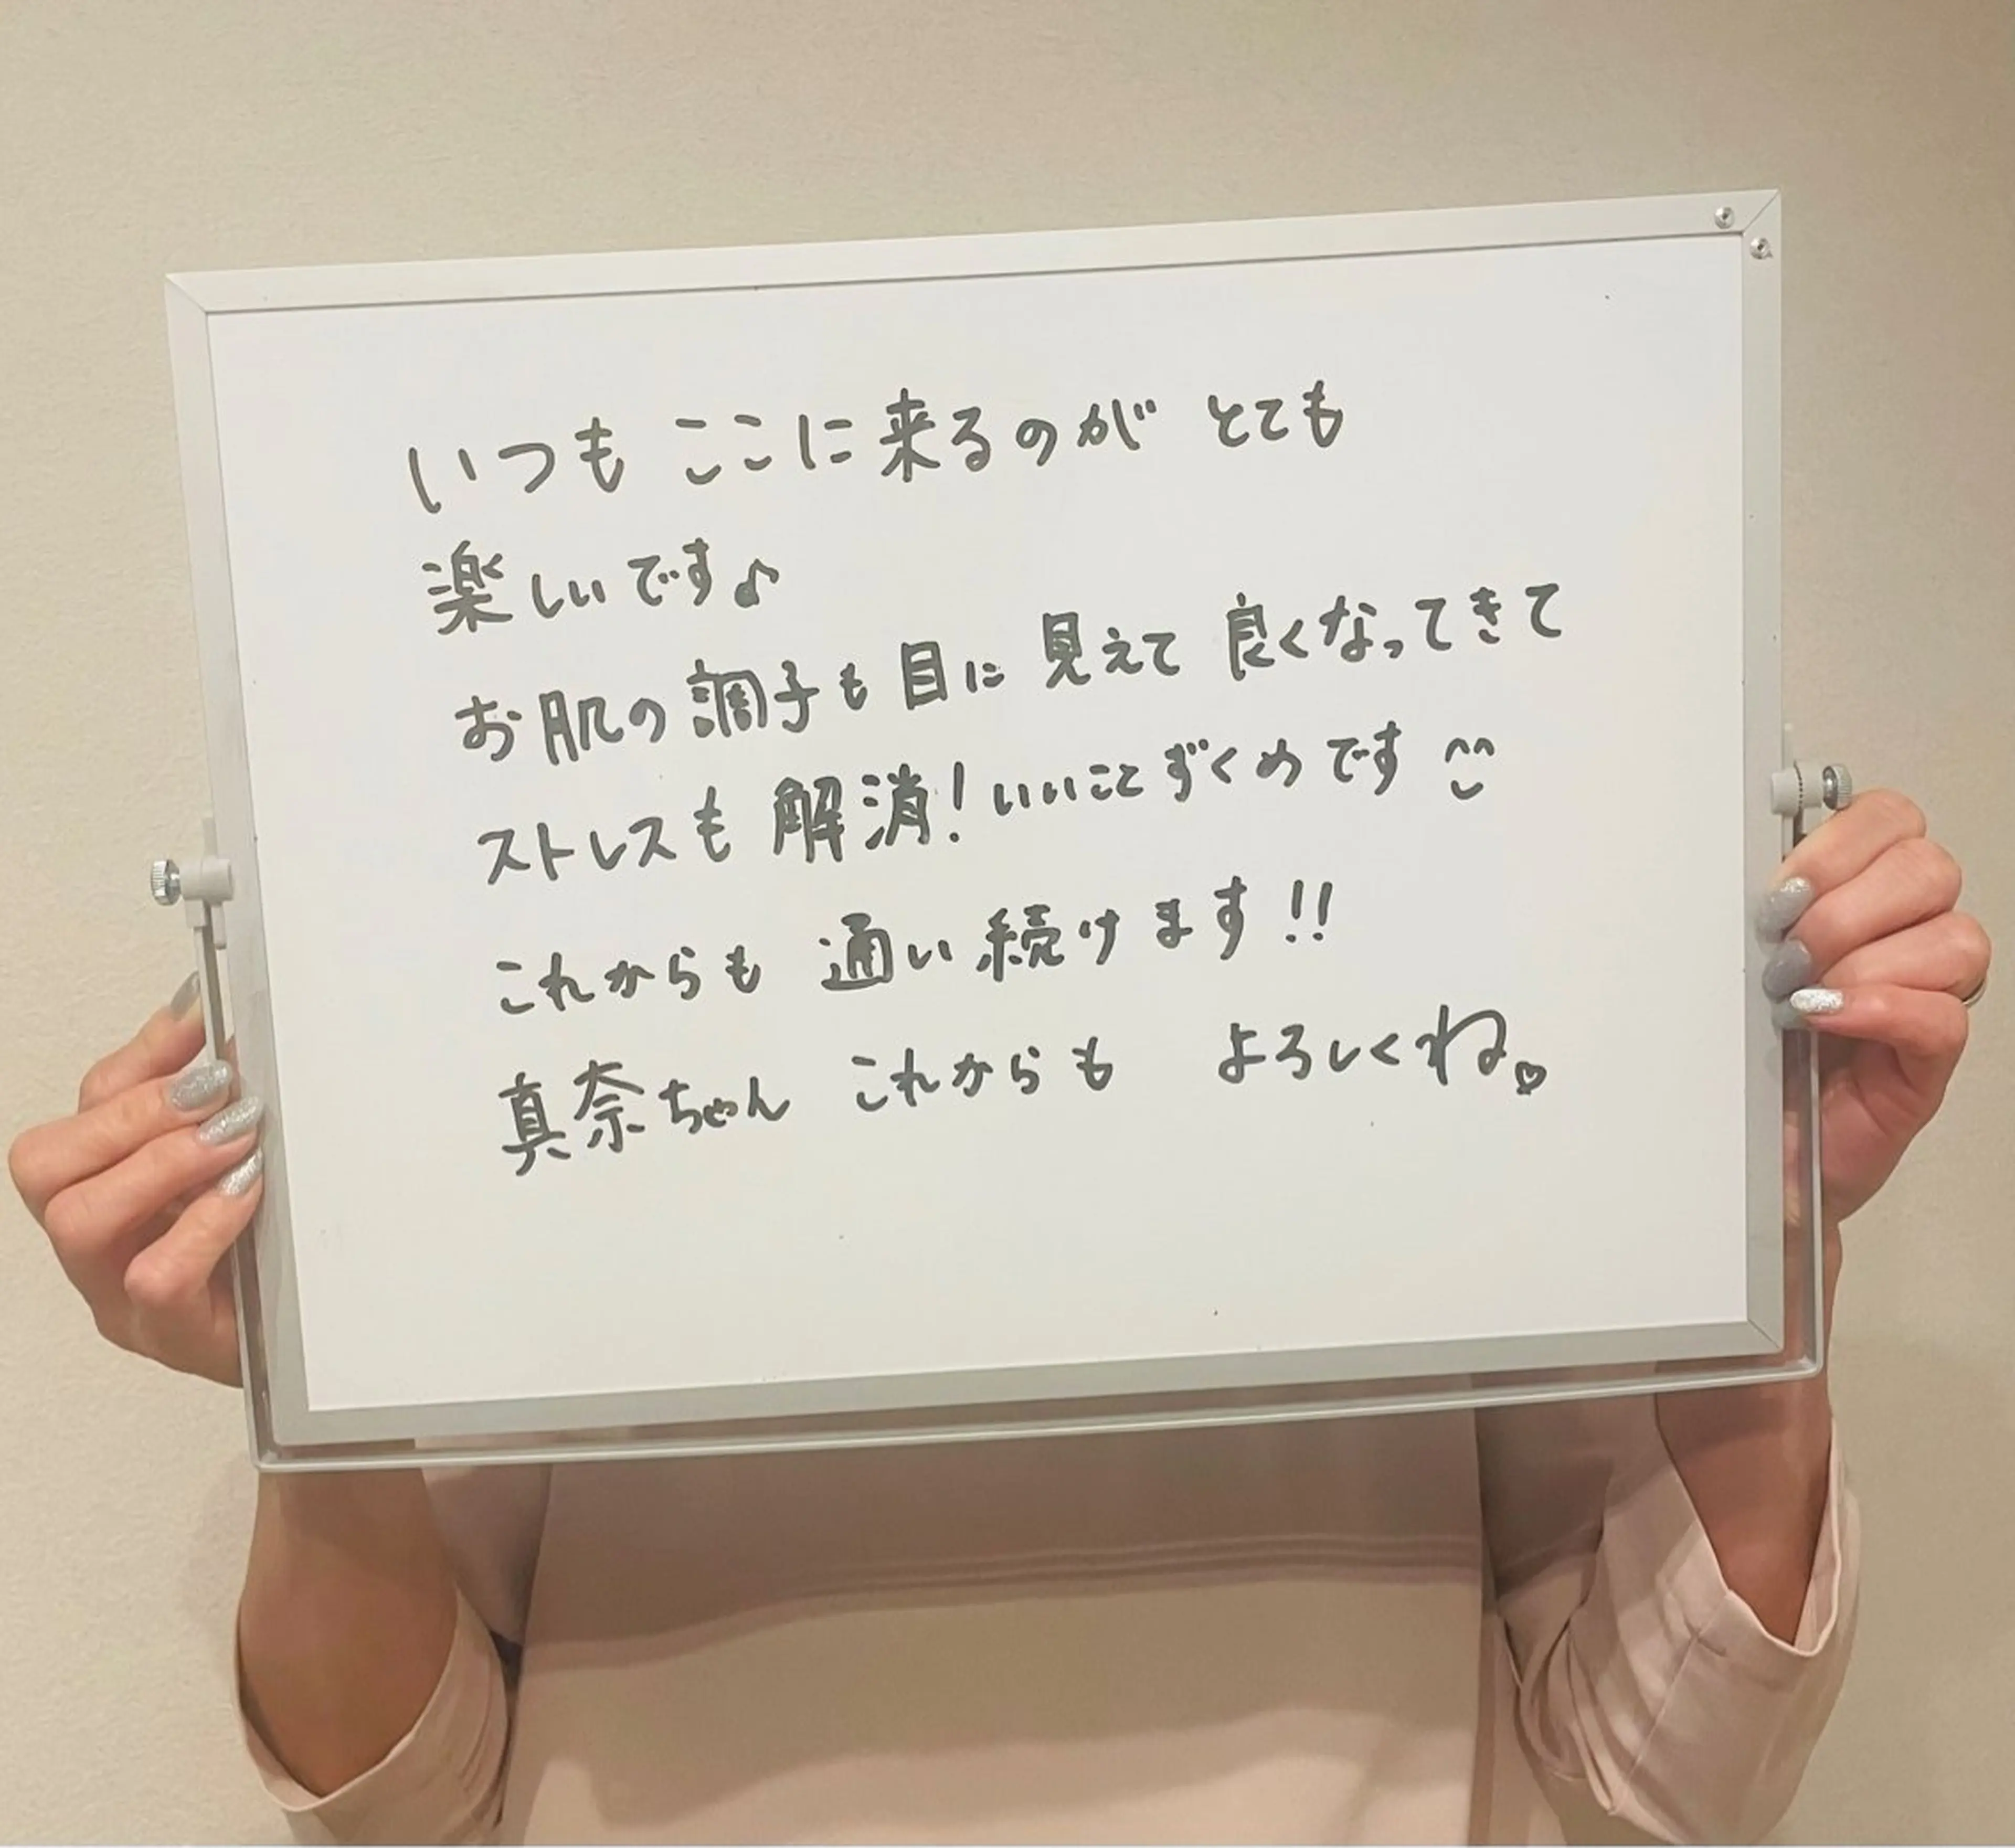 いつも ここに来るのが とても
楽しいです♪
お肌の調子も目に見えて良くなってきて
ストレスも解消!いいことずくめです ^^
これからも 通い続けます!!
真奈ちゃん これからも よろしくね♡